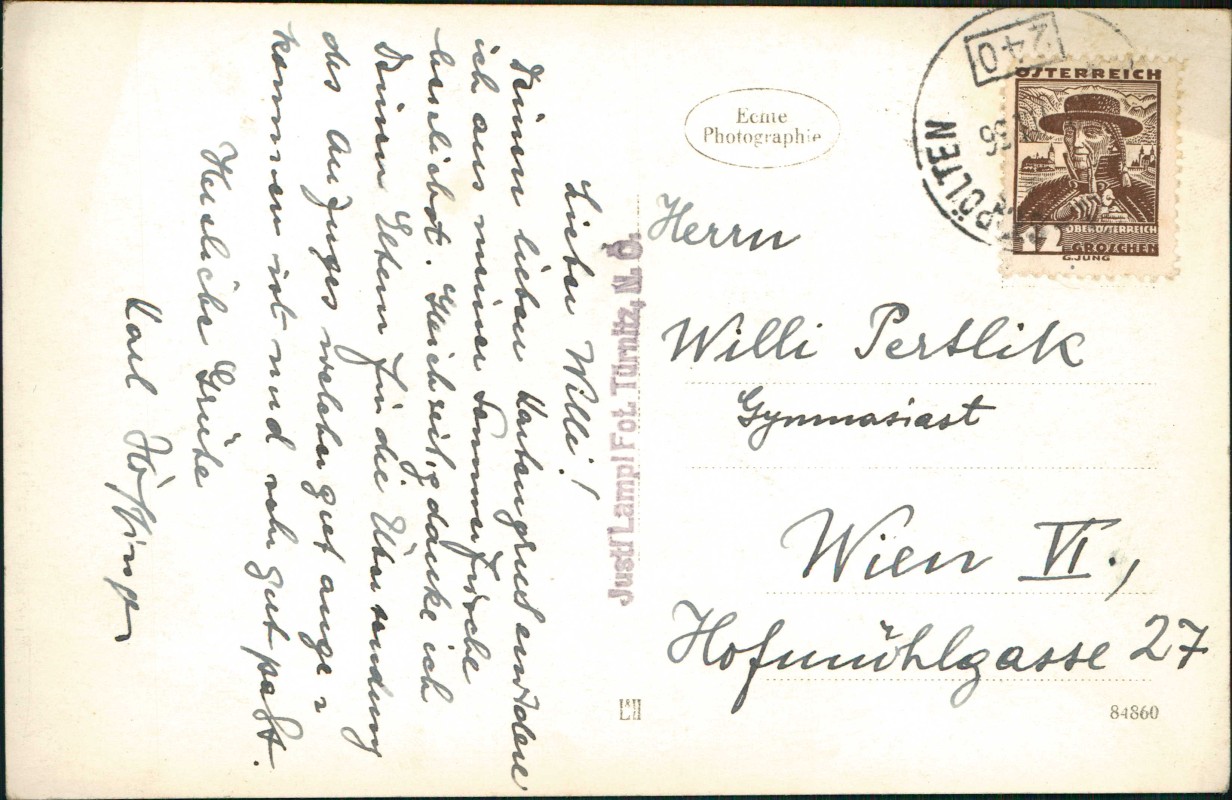 Lieber Willi!
Deinen lieben Kartengruß erwidere
ich aus meiner Sommerfrische
herzlichst. Gleichzeitig danke ich
Deinen Eltern für die Übersendung
des Anzuges welcher gut ange=
kommen ist und sehr gut paßt.
Herzliche Grüße
Karl
Echte
Photographie
Justl Lampl Fot. Türnitz, N. Ö.
Herrn
Willi Pertlik
Gymnasiast
Wien VI.,
Hofmühlgasse 27
84860
240
PÖLTEN
ÖSTERREICH
12
OBERÖSTERREICH
GROSCHEN
G.JUNG